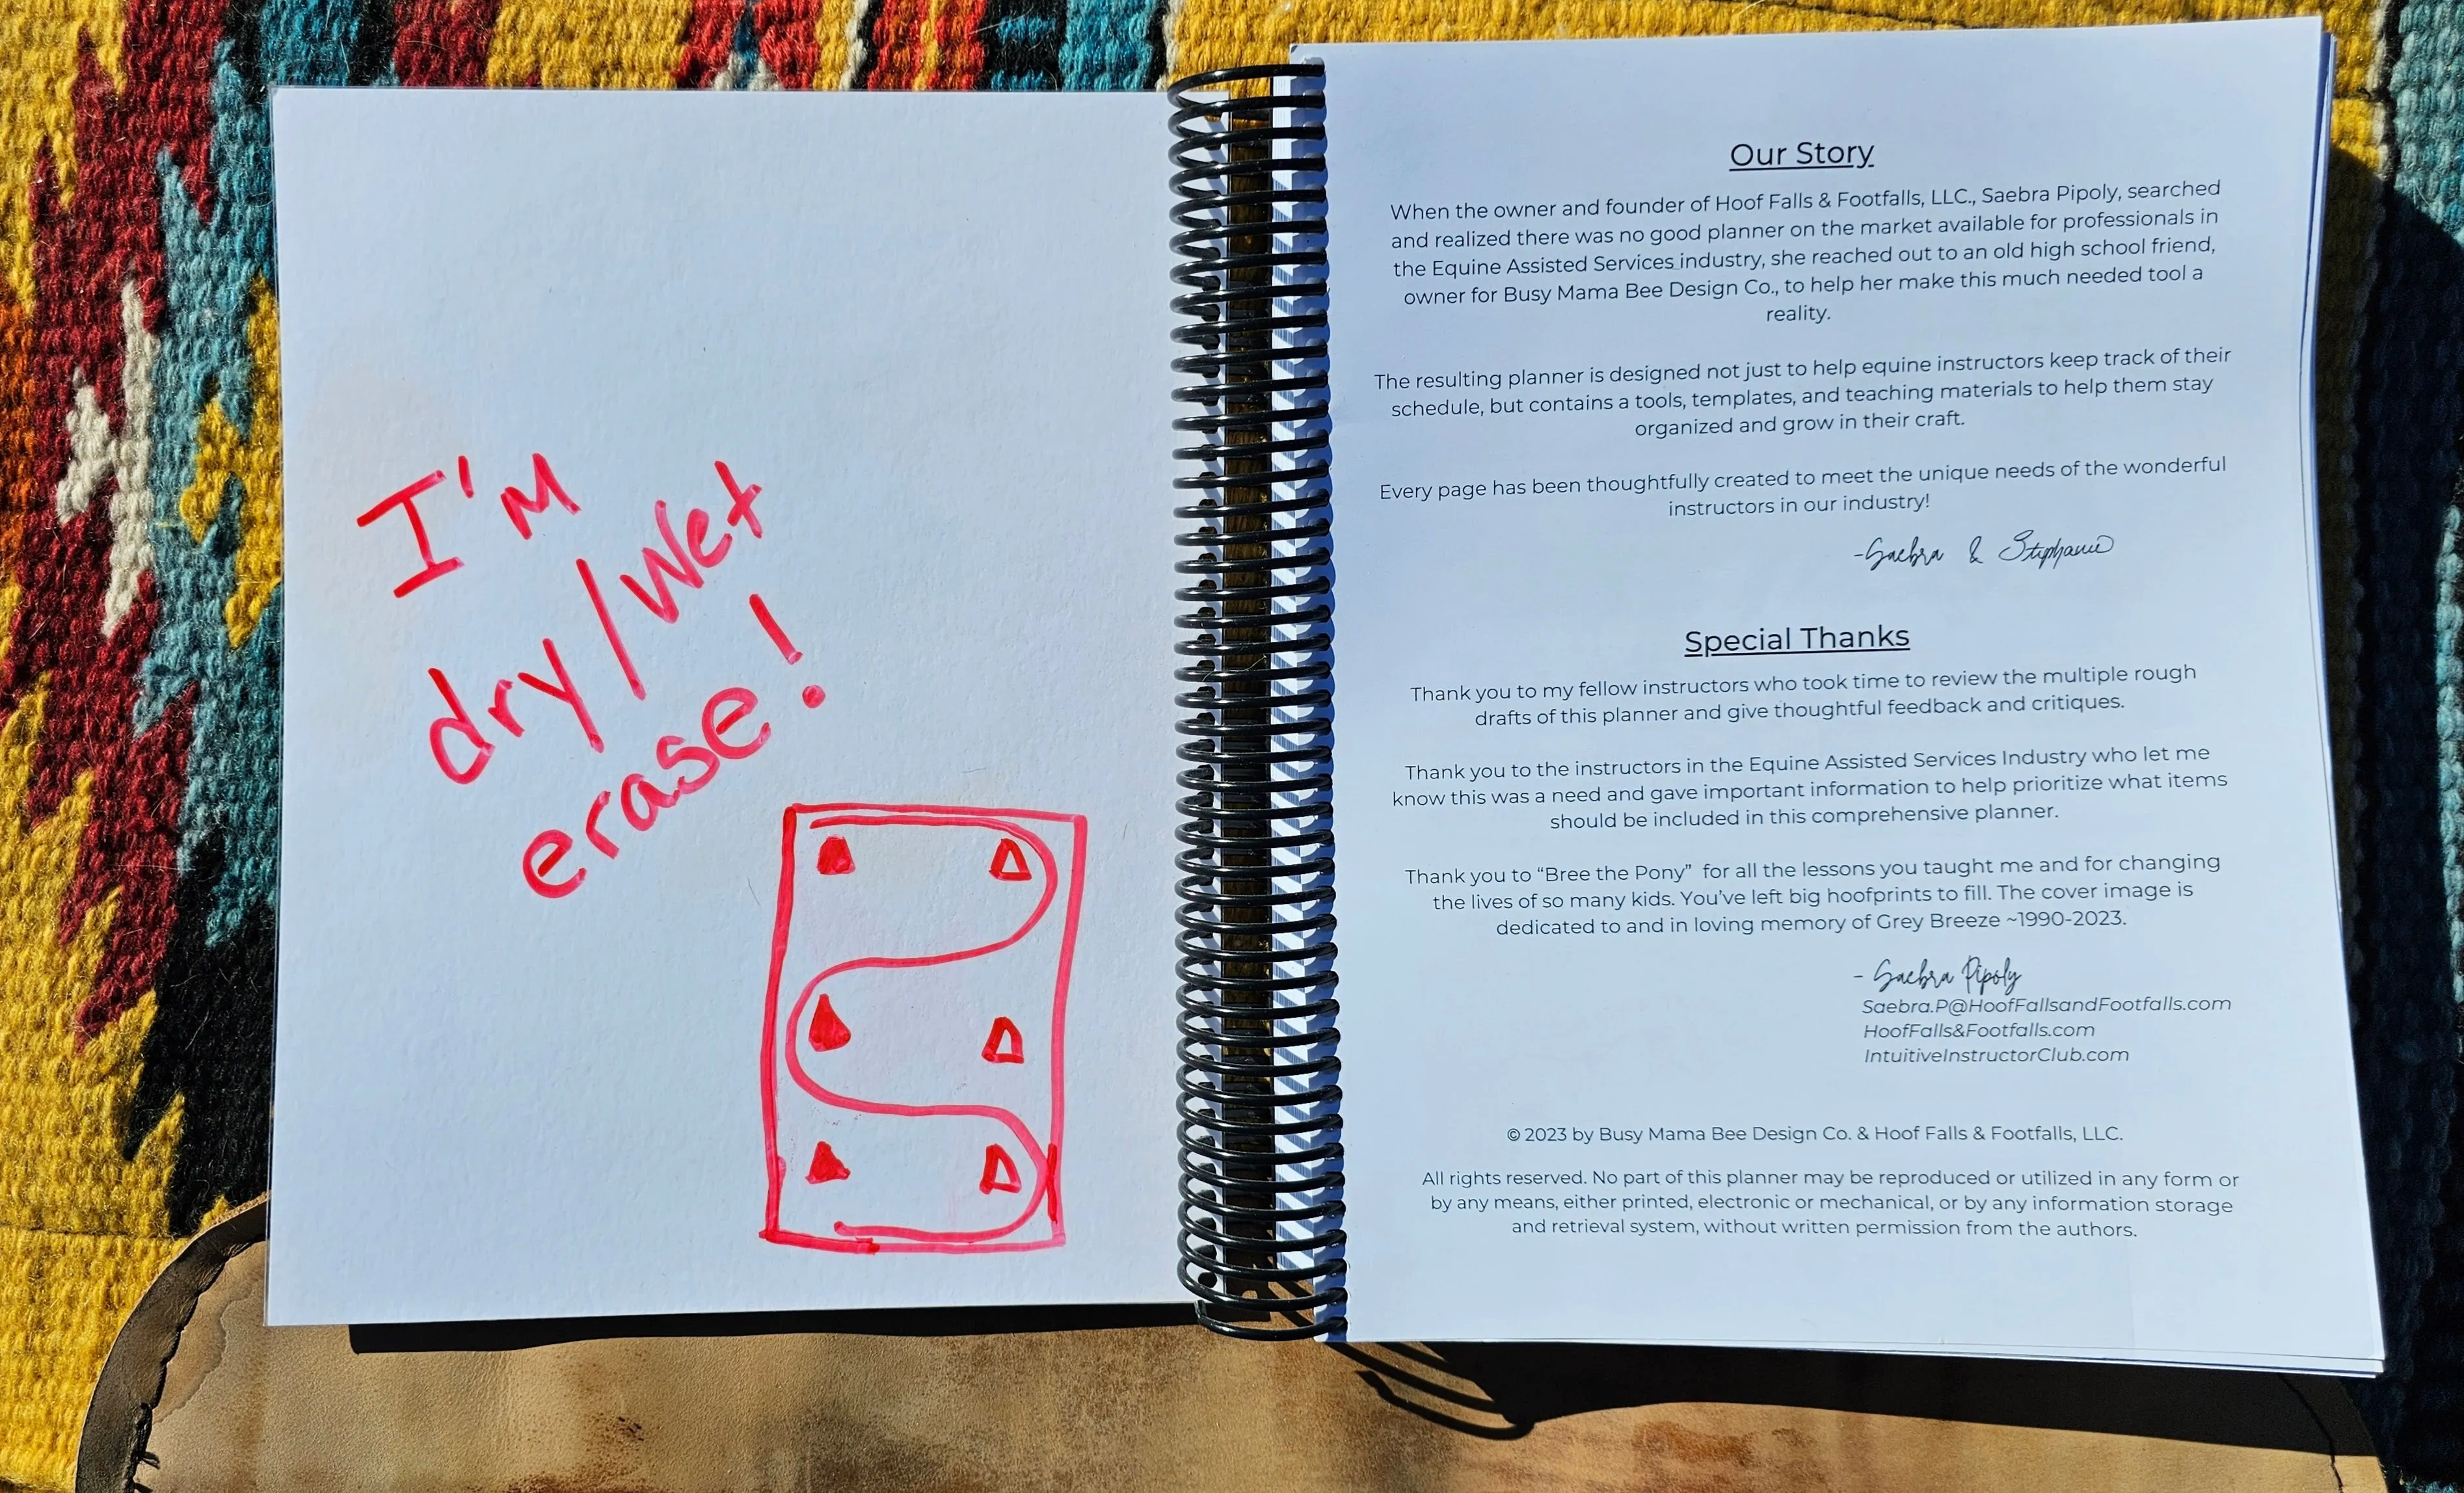 I'm
dry/wet
erase!
Our Story
When the owner and founder of Hoof Falls & Footfalls, LLC., Saebra Pipoly, searched
and realized there was no good planner on the market available for professionals in
the Equine Assisted Services industry, she reached out to an old high school friend,
owner for Busy Mama Bee Design Co., to help her make this much needed tool a
reality.
The resulting planner is designed not just to help equine instructors keep track of their
schedule, but contains a tools, templates, and teaching materials to help them stay
organized and grow in their craft.
Every page has been thoughtfully created to meet the unique needs of the wonderful
instructors in our industry!
-Saebra & Stephanie
Special Thanks
Thank you to my fellow instructors who took time to review the multiple rough
drafts of this planner and give thoughtful feedback and critiques.
Thank you to the instructors in the Equine Assisted Services Industry who let me
know this was a need and gave important information to help prioritize what items
should be included in this comprehensive planner.
Thank you to “Bree the Pony” for all the lessons you taught me and for changing
the lives of so many kids. You’ve left big hoofprints to fill. The cover image is
dedicated to and in loving memory of Grey Breeze ~1990-2023.
- Saebra Pipoly
Saebra.P@HoofFallsandFootfalls.com
HoofFalls&Footfalls.com
IntuitiveInstructorClub.com
© 2023 by Busy Mama Bee Design Co. & Hoof Falls & Footfalls, LLC.
All rights reserved. No part of this planner may be reproduced or utilized in any form or
by any means, either printed, electronic or mechanical, or by any information storage
and retrieval system, without written permission from the authors.